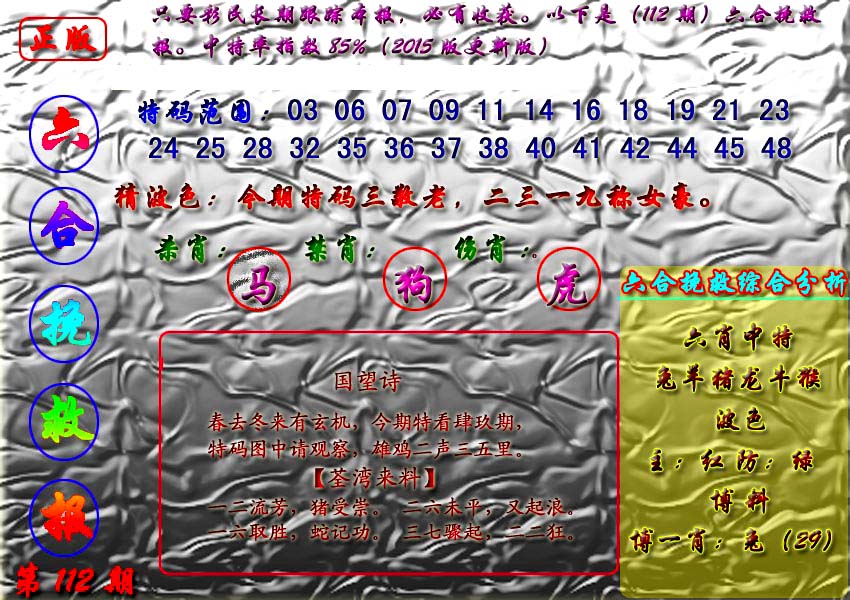 正版
只要彩民长期跟踪本报，必有收获。以下是（112期）六合挽救
报。中特率指数85%（2015版更新版）
六合挽救报
第112期
特码范围：03 06 07 09 11 14 16 18 19 21 23
24 25 28 32 35 36 37 38 40 41 42 44 45 48
猜波色：今期特码三数老，二三一九称女豪。
杀肖：马 禁肖：狗 伤肖：虎
国望诗
春去冬来有玄机，今期特看肆玖期，
特码图中请观察，雄鸡二声三五里。
【荃湾来料】
一二流芳，猪受崇。 二六未平，又起浪。
一六取胜，蛇记功。 三七骤起，二二狂。
六合挽救综合分析
六肖中特
兔羊猪龙牛猴
波色
主：红防：绿
博料
博一肖：兔（29）